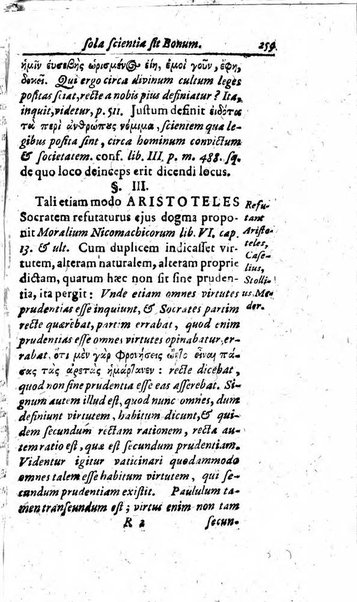 sola scientia sit Bonum. 259
ἡμῖν εὐσεβὴς ὡρισμένος εἴη, ἐμοὶ γοῦν, ἔφη,
δοκεῖ. Qui ergo circa divinum cultum leges
positas scitat, recte a nobis pius definiatur? Ita,
inquit, videtur, p. 511. Justum definit εἰδότα
τὰ περὶ ἀνθρώπους νόμιμα, scientem quæ le-
gibus posita sint, circa hominum convictum
& societatem. conf. lib. III. p. m. 488. sq.
de quo loco deinceps erit dicendi locus.
§. III.
Tali etiam modo ARISTOTELES
Socratem refutaturus ejus dogma propo-
nit Moralium Nicomachicorum lib. VI, cap.
13. & ult. Cum duplicem indicasset vir-
tutem, alteram naturalem, alteram proprie
dictam, quarum hæc non sit sine pruden-
tia, ita pergit: Unde etiam omnes virtutes
prudentias esse inquiunt, & Socrates partim
recte quærebat, partim errabat, quod enim
prudentias esse omnes virtutes opinabatur, er-
rabat. ὅτι μὲν γὰρ φρονήσεις ᾤετο εἶναι πά-
σας τὰς ἀρετὰς ἡμάρτανεν: recte dicebat,
quod non sine prudentia esse eas asserebat. Si-
gnum autem illud est, quod omnes nunc, dum
definiunt virtutem, habitum dicunt, & qui-
dem secundum rectam rationem, recta au-
tem est, quæ est secundum prudentiam.
Videntur igitur vaticinari quodammodo
omnes talem esse habitum virtutem, qui se-
cundum prudentiam existit. Paululum ta-
men transeundum est; virtus enim non tam
R 2 secun-
Refu-
tant
Aristo-
teles,
Case-
lius,
Stolli-
us. Me-
der.